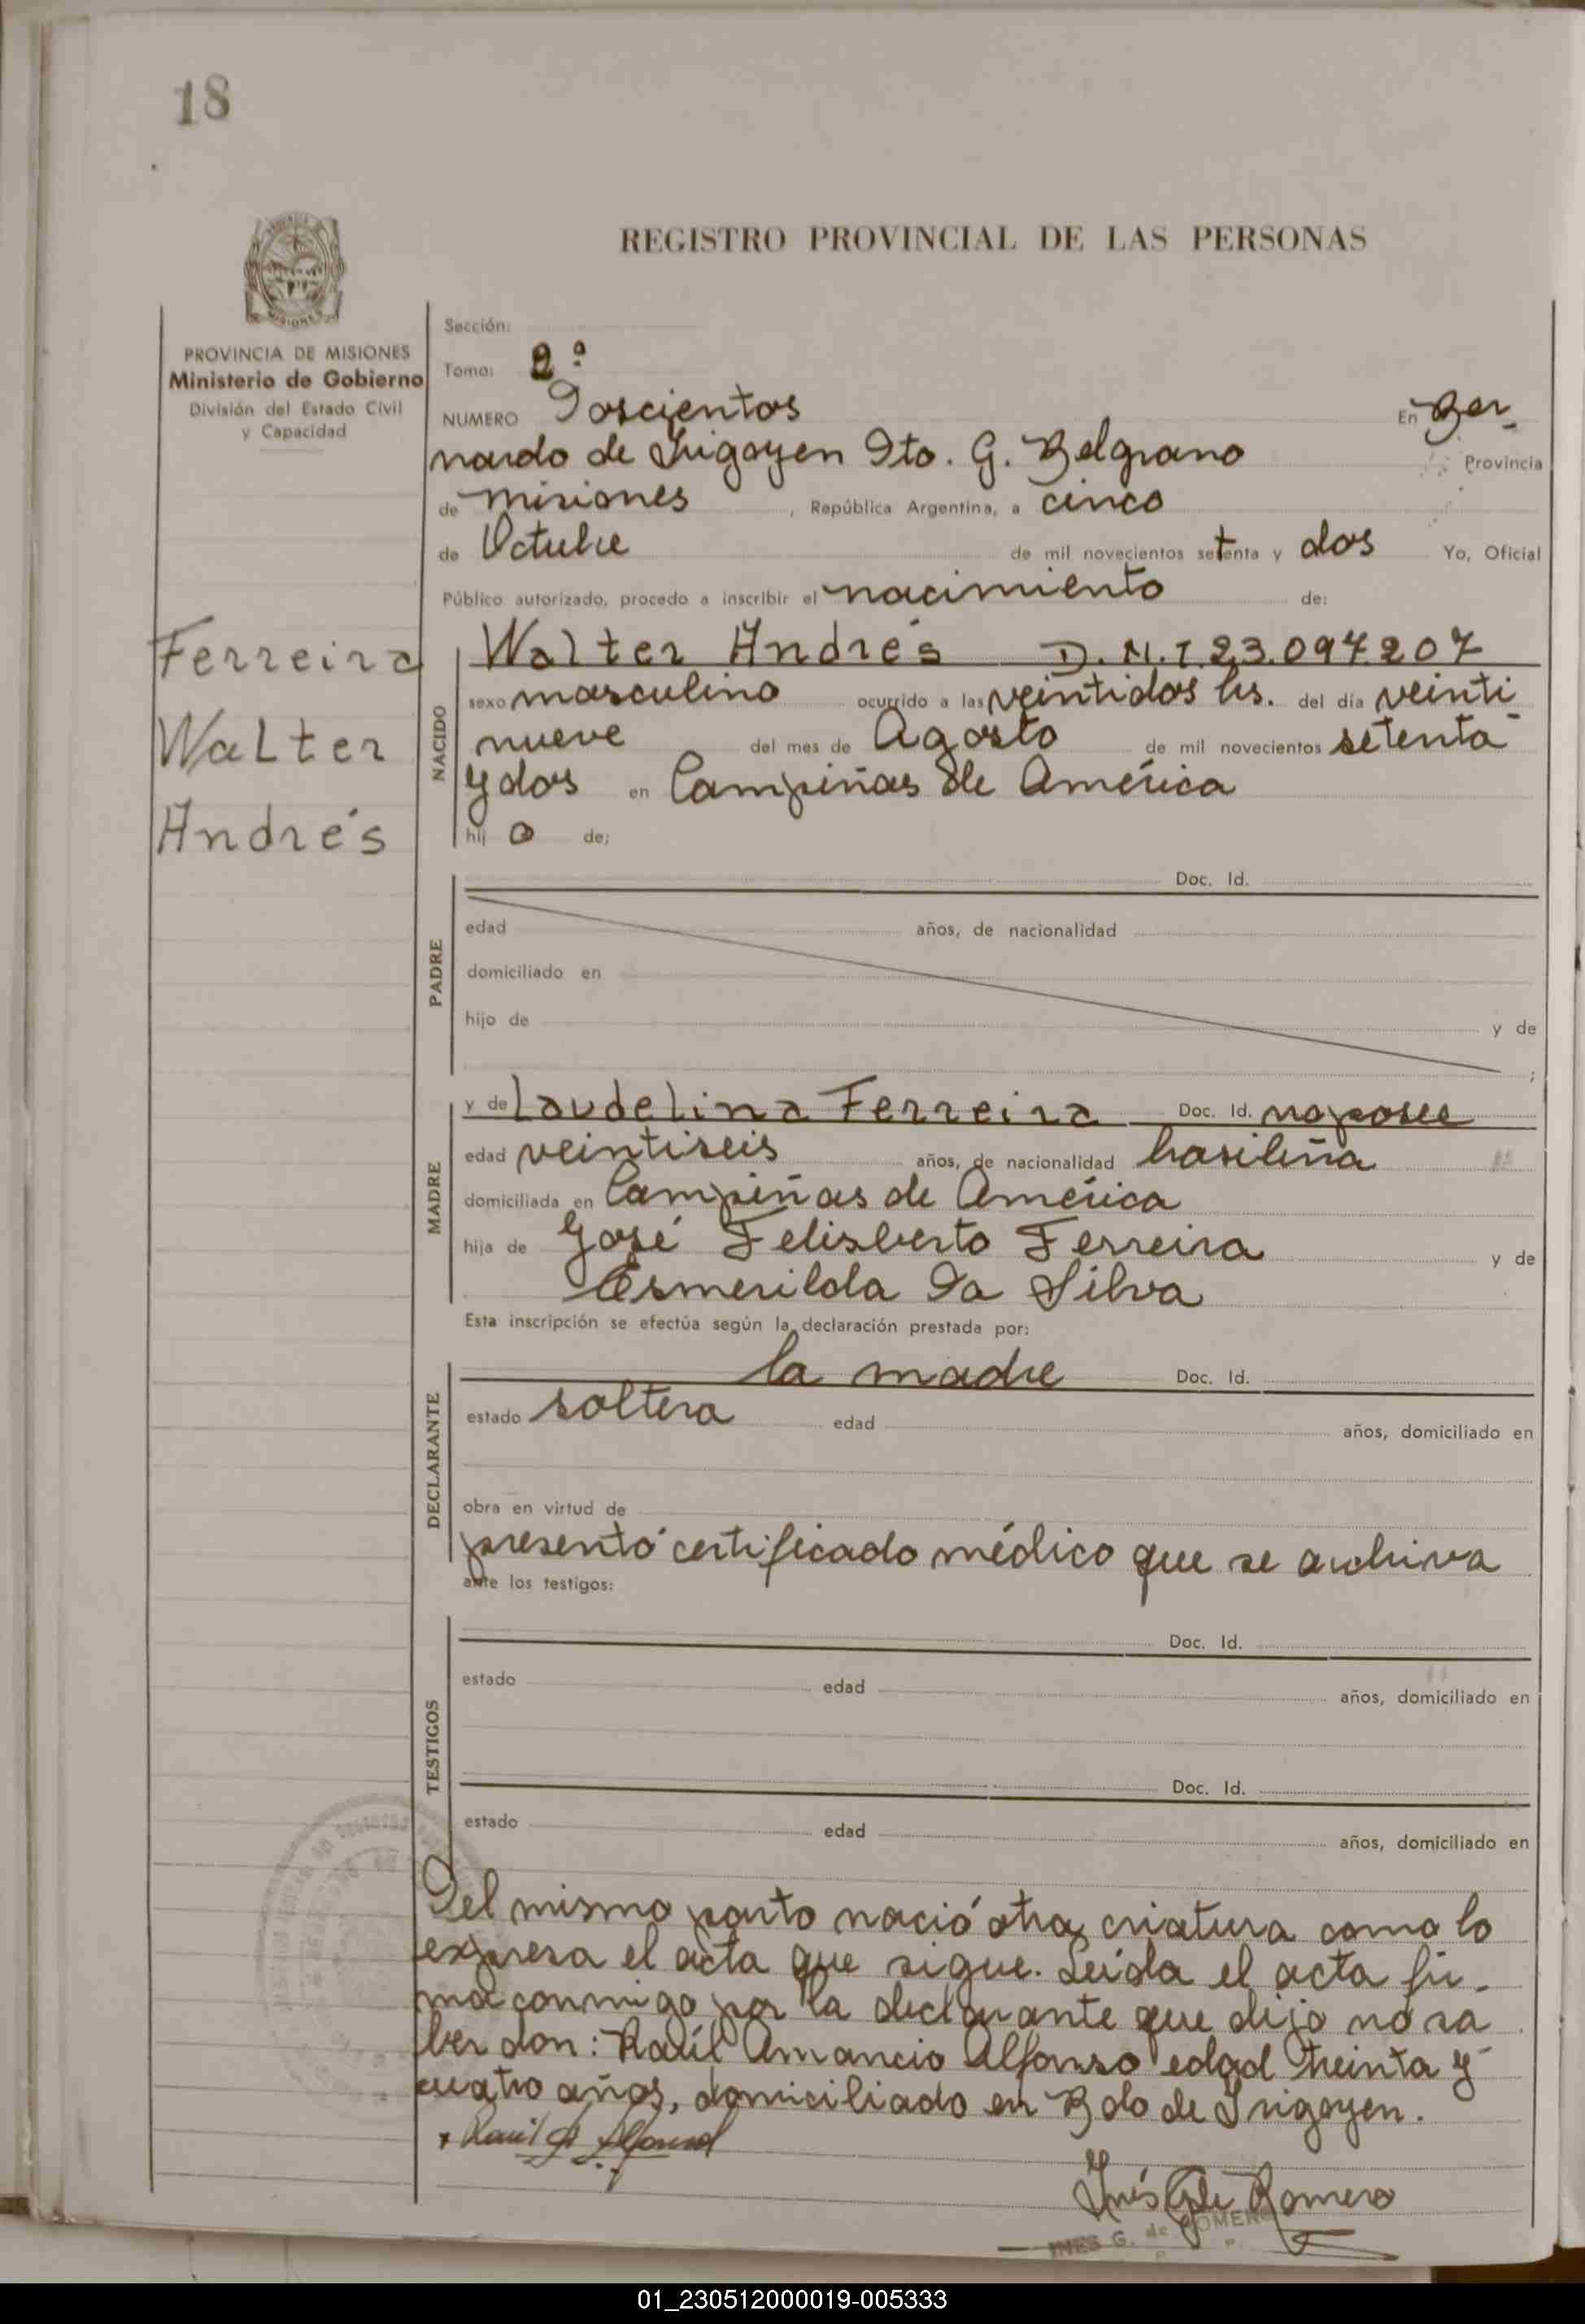 18
REGISTRO PROVINCIAL DE LAS PERSONAS
PROVINCIA DE MISIONES
Ministerio de Gobierno
División del Estado Civil
y Capacidad
Ferreira
Walter
Andrés
Sección:
Tomo: 2º
NUMERO Doscientos En Ber_
nardo de Irigoyen Dto. G. Belgrano Provincia
de Misiones, República Argentina, a cinco
de Octubre de mil novecientos setenta y dos Yo, Oficial
Público autorizado, procedo a inscribir el nacimiento de:
NACIDO
Walter Andrés D.N.I. 23.097.207
sexo masculino ocurrido a las veintidos hs. del día veinti_
nueve del mes de Agosto de mil novecientos setenta
y dos en Campiñas de América
hij o de;
PADRE
Doc. Id.
edad años, de nacionalidad
domiciliado en
hijo de y de
;
MADRE
y de Laudelina Ferreira Doc. Id. no posee
edad veintiseis años, de nacionalidad brasileña
domiciliada en Campiñas de América
hija de José Felisberto Ferreira y de
Esmerilda Da Silva
Esta inscripción se efectúa según la declaración prestada por:
DECLARANTE
la madre Doc. Id.
estado soltera edad años, domiciliado en
obra en virtud de
presentó certificado médico que se archiva
ante los testigos:
TESTIGOS
Doc. Id.
estado edad años, domiciliado en
Doc. Id.
estado edad años, domiciliado en
Del mismo parto nació otra criatura como lo
expresa el acta que sigue. Leída el acta fir_
ma conmigo por la declarante que dijo no sa
ber don: Raúl Amancio Alfonso edad treinta y
cuatro años, domiciliado en Bdo de Irigoyen.
Raul A Alfonso
Inés G de Romero
INES G. de ROMERO
01_230512000019-005333